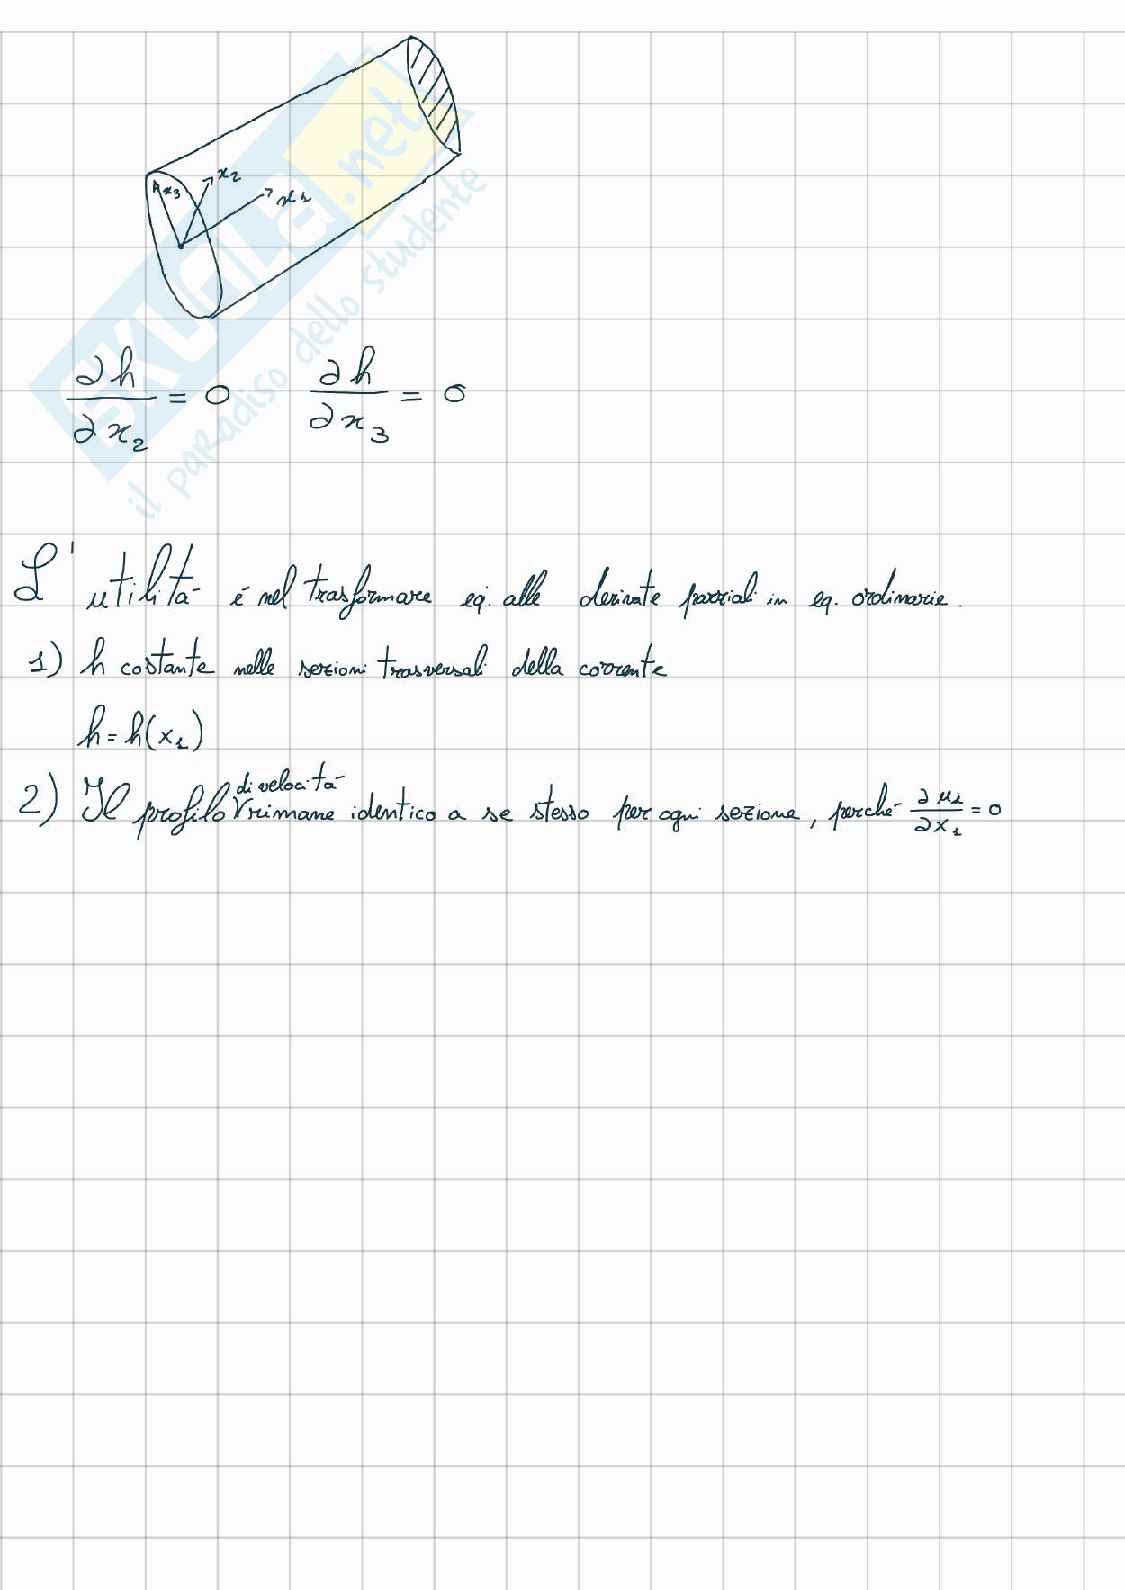 SKUOLA.net
il paradiso dello studente
x₃ x₂ x₁
∂h/∂x₂ = 0 ∂h/∂x₃ = 0
L'utilità é nel trasformare eq. alle derivate parziali in eq. ordinarie.
1) h costante nelle sezioni trasversali della corrente
h = h(x₁)
2) Il profilo di velocità rimane identico a se stesso per ogni sezione, perché ∂u₁/∂x₁ = 0